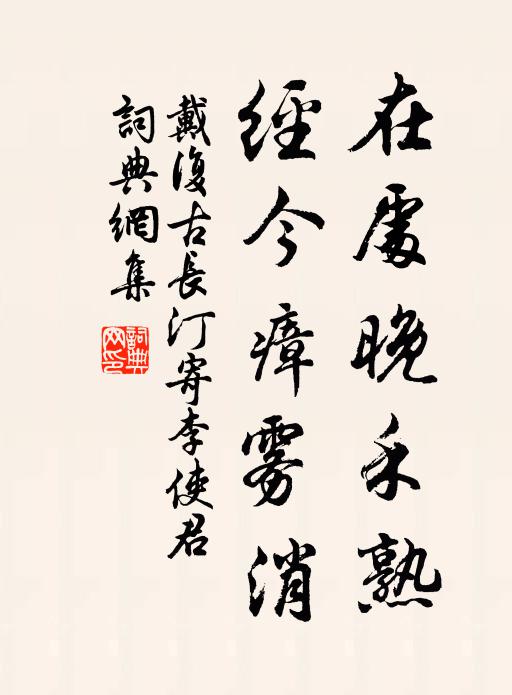 在處晚禾熟
經今瘴雾消
戴復古長汀寄李使君
詞典網集
詞典网印